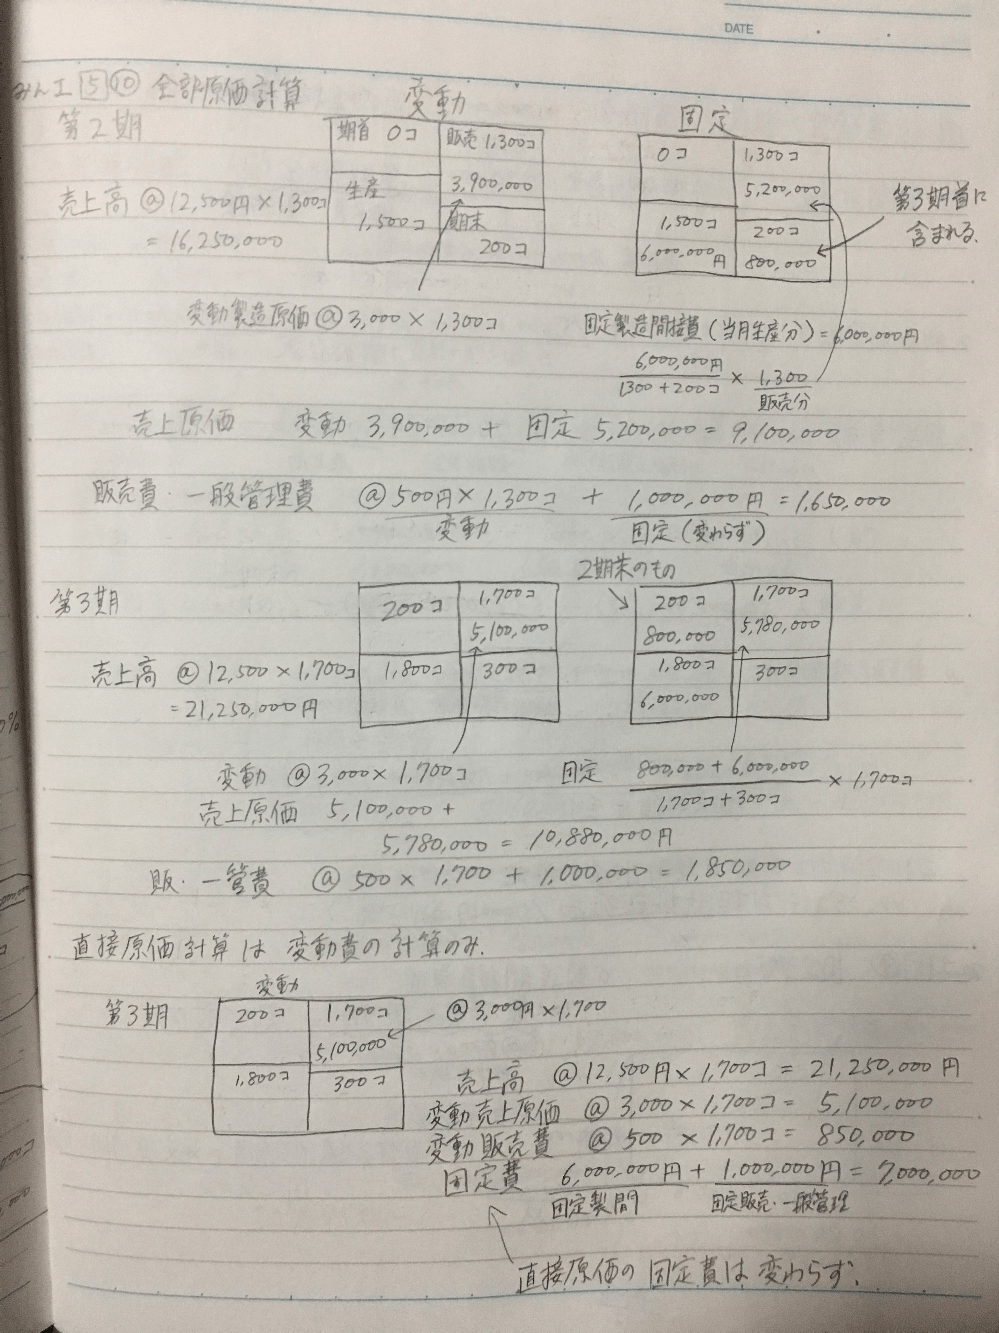 DATE
みんエ 5 ⑩ 全部原価計算
第2期
変動
期首 0コ 販売 1,300コ
3,900,000
生産 1,500コ 期末 200コ
固定
0コ 1,300コ
5,200,000
1,500コ 200コ
6,000,000円 800,000
第3期首に
含まれる.
売上高 @12,500円×1,300コ
= 16,250,000
変動製造原価 @3,000 × 1,300コ
固定製造間接費(当月生産分)= 6,000,000円
6,000,000円 / 1300 + 200コ × 1,300 / 販売分
売上原価 変動 3,900,000 + 固定 5,200,000 = 9,100,000
販売費・一般管理費 @500円×1,300コ + 1,000,000円 = 1,650,000
変動 固定(変わらず)
第3期
200コ 1,700コ
5,100,000
1,800コ 300コ
2期末のもの
200コ 1,700コ
800,000 5,780,000
1,800コ 300コ
6,000,000
売上高 @12,500×1,700コ
= 21,250,000円
変動 @3,000×1,700コ
固定 800,000 + 6,000,000 / 1,700コ + 300コ × 1,700コ
売上原価 5,100,000 +
5,780,000 = 10,880,000円
販・一管費 @500 × 1,700 + 1,000,000 = 1,850,000
直接原価計算は 変動費の計算のみ.
第3期
変動
200コ 1,700コ
5,100,000
1,800コ 300コ
@3,000円×1,700
売上高 @12,500円×1,700コ = 21,250,000円
変動売上原価 @3,000×1,700コ = 5,100,000
変動販売費 @500 ×1,700コ = 850,000
固定費 6,000,000円 + 1,000,000円 = 7,000,000
固定製間 固定販売・一般管理
直接原価の 固定費は 変わらず.